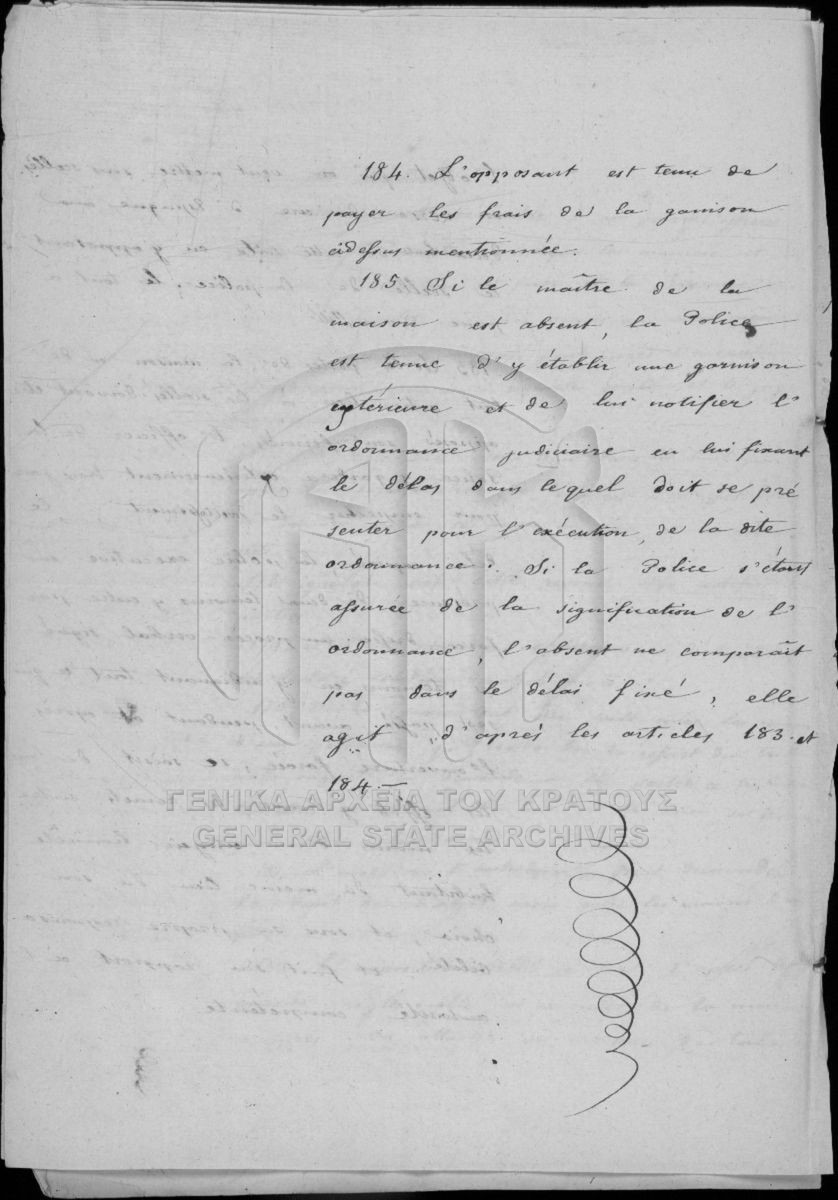 184. L'opposant est tenu de
payer les frais de la garnison
cidessus mentionnée.
185. Si le maître de la
maison est absent, la Police
est tenue d'y établir une garnison
extérieure et de lui notifier l'
ordonnance judiciaire en lui fixant
le délas dans lequel doit se pré
senter pour l'exécution, de la dite
ordonnance. Si la Police s'étant
assurée de la signification de l'
ordonnance, l'absent ne comparaît
pas dans le délai fixé, elle
agit d'aprés les articles 183. et
184—
ΓΕΝΙΚΑ ΑΡΧΕΙΑ ΤΟΥ ΚΡΑΤΟΥΣ
GENERAL STATE ARCHIVES